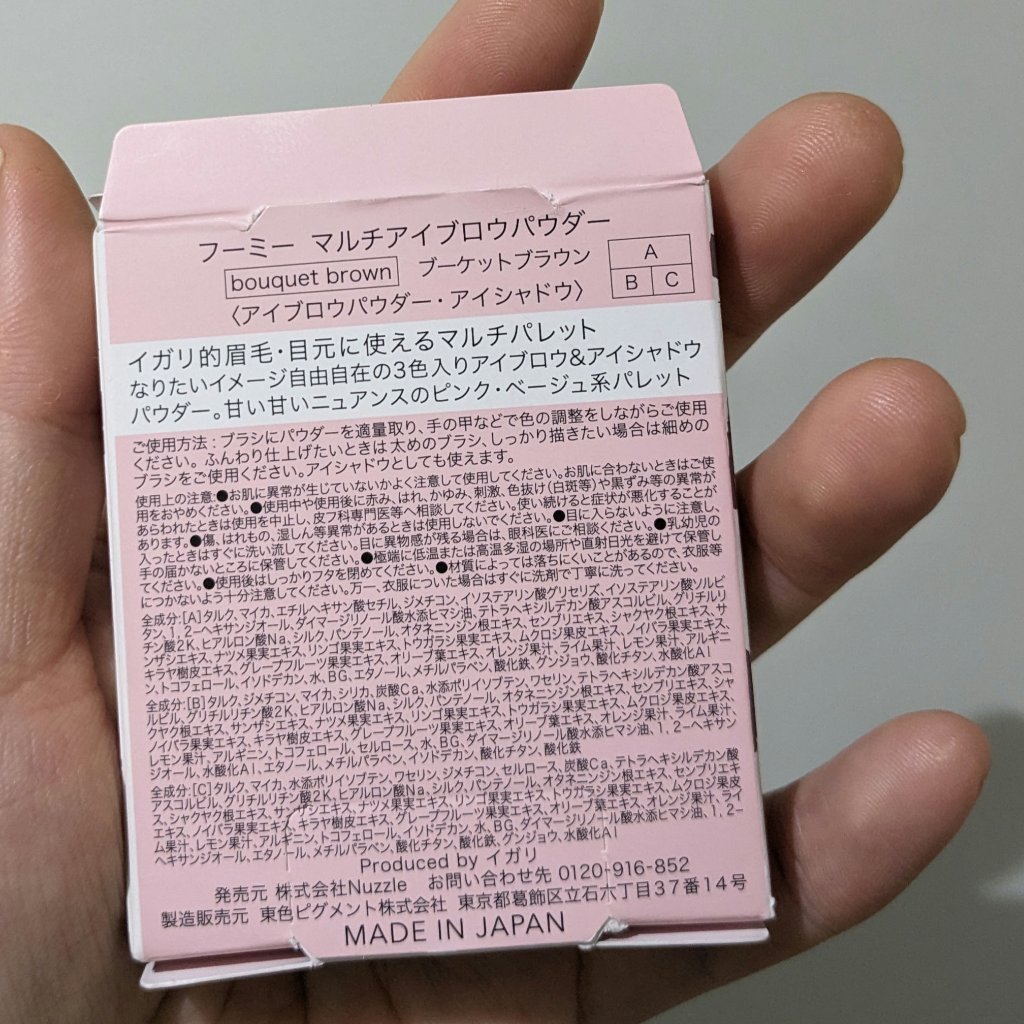 フーミー マルチアイブロウパウダー
bouquet brown ブーケットブラウン
A
B C
〈アイブロウパウダー・アイシャドウ〉
イガリ的眉毛・目元に使えるマルチパレット
なりたいイメージ自由自在の3色入りアイブロウ&アイシャドウ
パウダー。甘い甘いニュアンスのピンク・ベージュ系パレット
ご使用方法：ブラシにパウダーを適量取り、手の甲などで色の調整をしながらご使用
ください。ふんわり仕上げたいときは太めのブラシ、しっかり描きたい場合は細めの
ブラシをご使用ください。アイシャドウとしても使えます。
使用上の注意:●お肌に異常が生じていないかよく注意して使用してください。お肌に合わないときはご使
用をおやめください。●使用中や使用後に赤み、はれ、かゆみ、刺激、色抜け(白斑等)や黒ずみ等の異常が
あらわれたときは使用を中止し、皮フ科専門医等へ相談してください。使い続けると症状が悪化することが
あります。●傷、はれもの、湿しん等異常があるときは使用しないでください。●目に入らないように注意し、
入ったときはすぐに洗い流してください。目に異物感が残る場合は、眼科医にご相談ください。●乳幼児の
手の届かないところに保管してください。●極端に低温または高温多湿の場所や直射日光を避けて保管し
てください。●使用後はしっかりフタを閉めてください。●材質によっては落ちにくいことがあるので、衣服等
につかないよう十分注意してください。万一、衣服についた場合はすぐに洗剤で丁寧に洗ってください。
全成分:[A]タルク、マイカ、エチルヘキサン酸セチル、ジメチコン、イソステアリン酸グリセリズ、イソステアリン酸ソルビ
タン、1,2-ヘキサンジオール、ダイマージリノール酸水添ヒマシ油、テトラヘキシルデカン酸アスコルビル、グリチルリ
チン酸2K、ヒアルロン酸Na、シルク、パンテノール、オタネニンジン根エキス、センブリエキス、シャクヤク根エキス、サ
ンザシエキス、ナツメ果実エキス、リンゴ果実エキス、トウガラシ果実エキス、ムクロジ果皮エキス、ノイバラ果実エキス、
キラヤ樹皮エキス、グレープフルーツ果実エキス、オリーブ葉エキス、オレンジ果汁、ライム果汁、レモン果汁、アルギニ
ン、トコフェロール、イソドデカン、水、BG、エタノール、メチルパラベン、酸化鉄、グンジョウ、酸化チタン、水酸化Al
全成分:[B]タルク、ジメチコン、マイカ、シリカ、炭酸Ca、水添ポリイソブテン、ワセリン、テトラヘキシルデカン酸アスコ
ルビル、グリチルリチン酸2K、ヒアルロン酸Na、シルク、パンテノール、オタネニンジン根エキス、センブリエキス、シャ
クヤク根エキス、サンザシエキス、ナツメ果実エキス、リンゴ果実エキス、トウガラシ果実エキス、ムクロジ果皮エキス、
ノイバラ果実エキス、キラヤ樹皮エキス、グレープフルーツ果実エキス、オリーブ葉エキス、オレンジ果汁、ライム果汁、
レモン果汁、アルギニン、トコフェロール、セルロース、水、BG、ダイマージリノール酸水添ヒマシ油、1,2-ヘキサン
ジオール、水酸化Al、エタノール、メチルパラベン、イソドデカン、酸化チタン、酸化鉄
全成分:[C]タルク、マイカ、水添ポリイソブテン、ワセリン、ジメチコン、セルロース、炭酸Ca、テトラヘキシルデカン酸
アスコルビル、グリチルリチン酸2K、ヒアルロン酸Na、シルク、パンテノール、オタネニンジン根エキス、センブリエキ
ス、シャクヤク根エキス、サンザシエキス、ナツメ果実エキス、リンゴ果実エキス、トウガラシ果実エキス、ムクロジ果皮
エキス、ノイバラ果実エキス、キラヤ樹皮エキス、グレープフルーツ果実エキス、オリーブ葉エキス、オレンジ果汁、ライ
ム果汁、レモン果汁、アルギニン、トコフェロール、イソドデカン、水、BG、ダイマージリノール酸水添ヒマシ油、1,2-
ヘキサンジオール、エタノール、メチルパラベン、酸化チタン、酸化鉄、グンジョウ、水酸化Al
Produced by イガリ
発売元 株式会社Nuzzle お問い合わせ先 0120-916-852
製造販売元 東色ピグメント株式会社 東京都葛飾区立石六丁目37番14号
MADE IN JAPAN